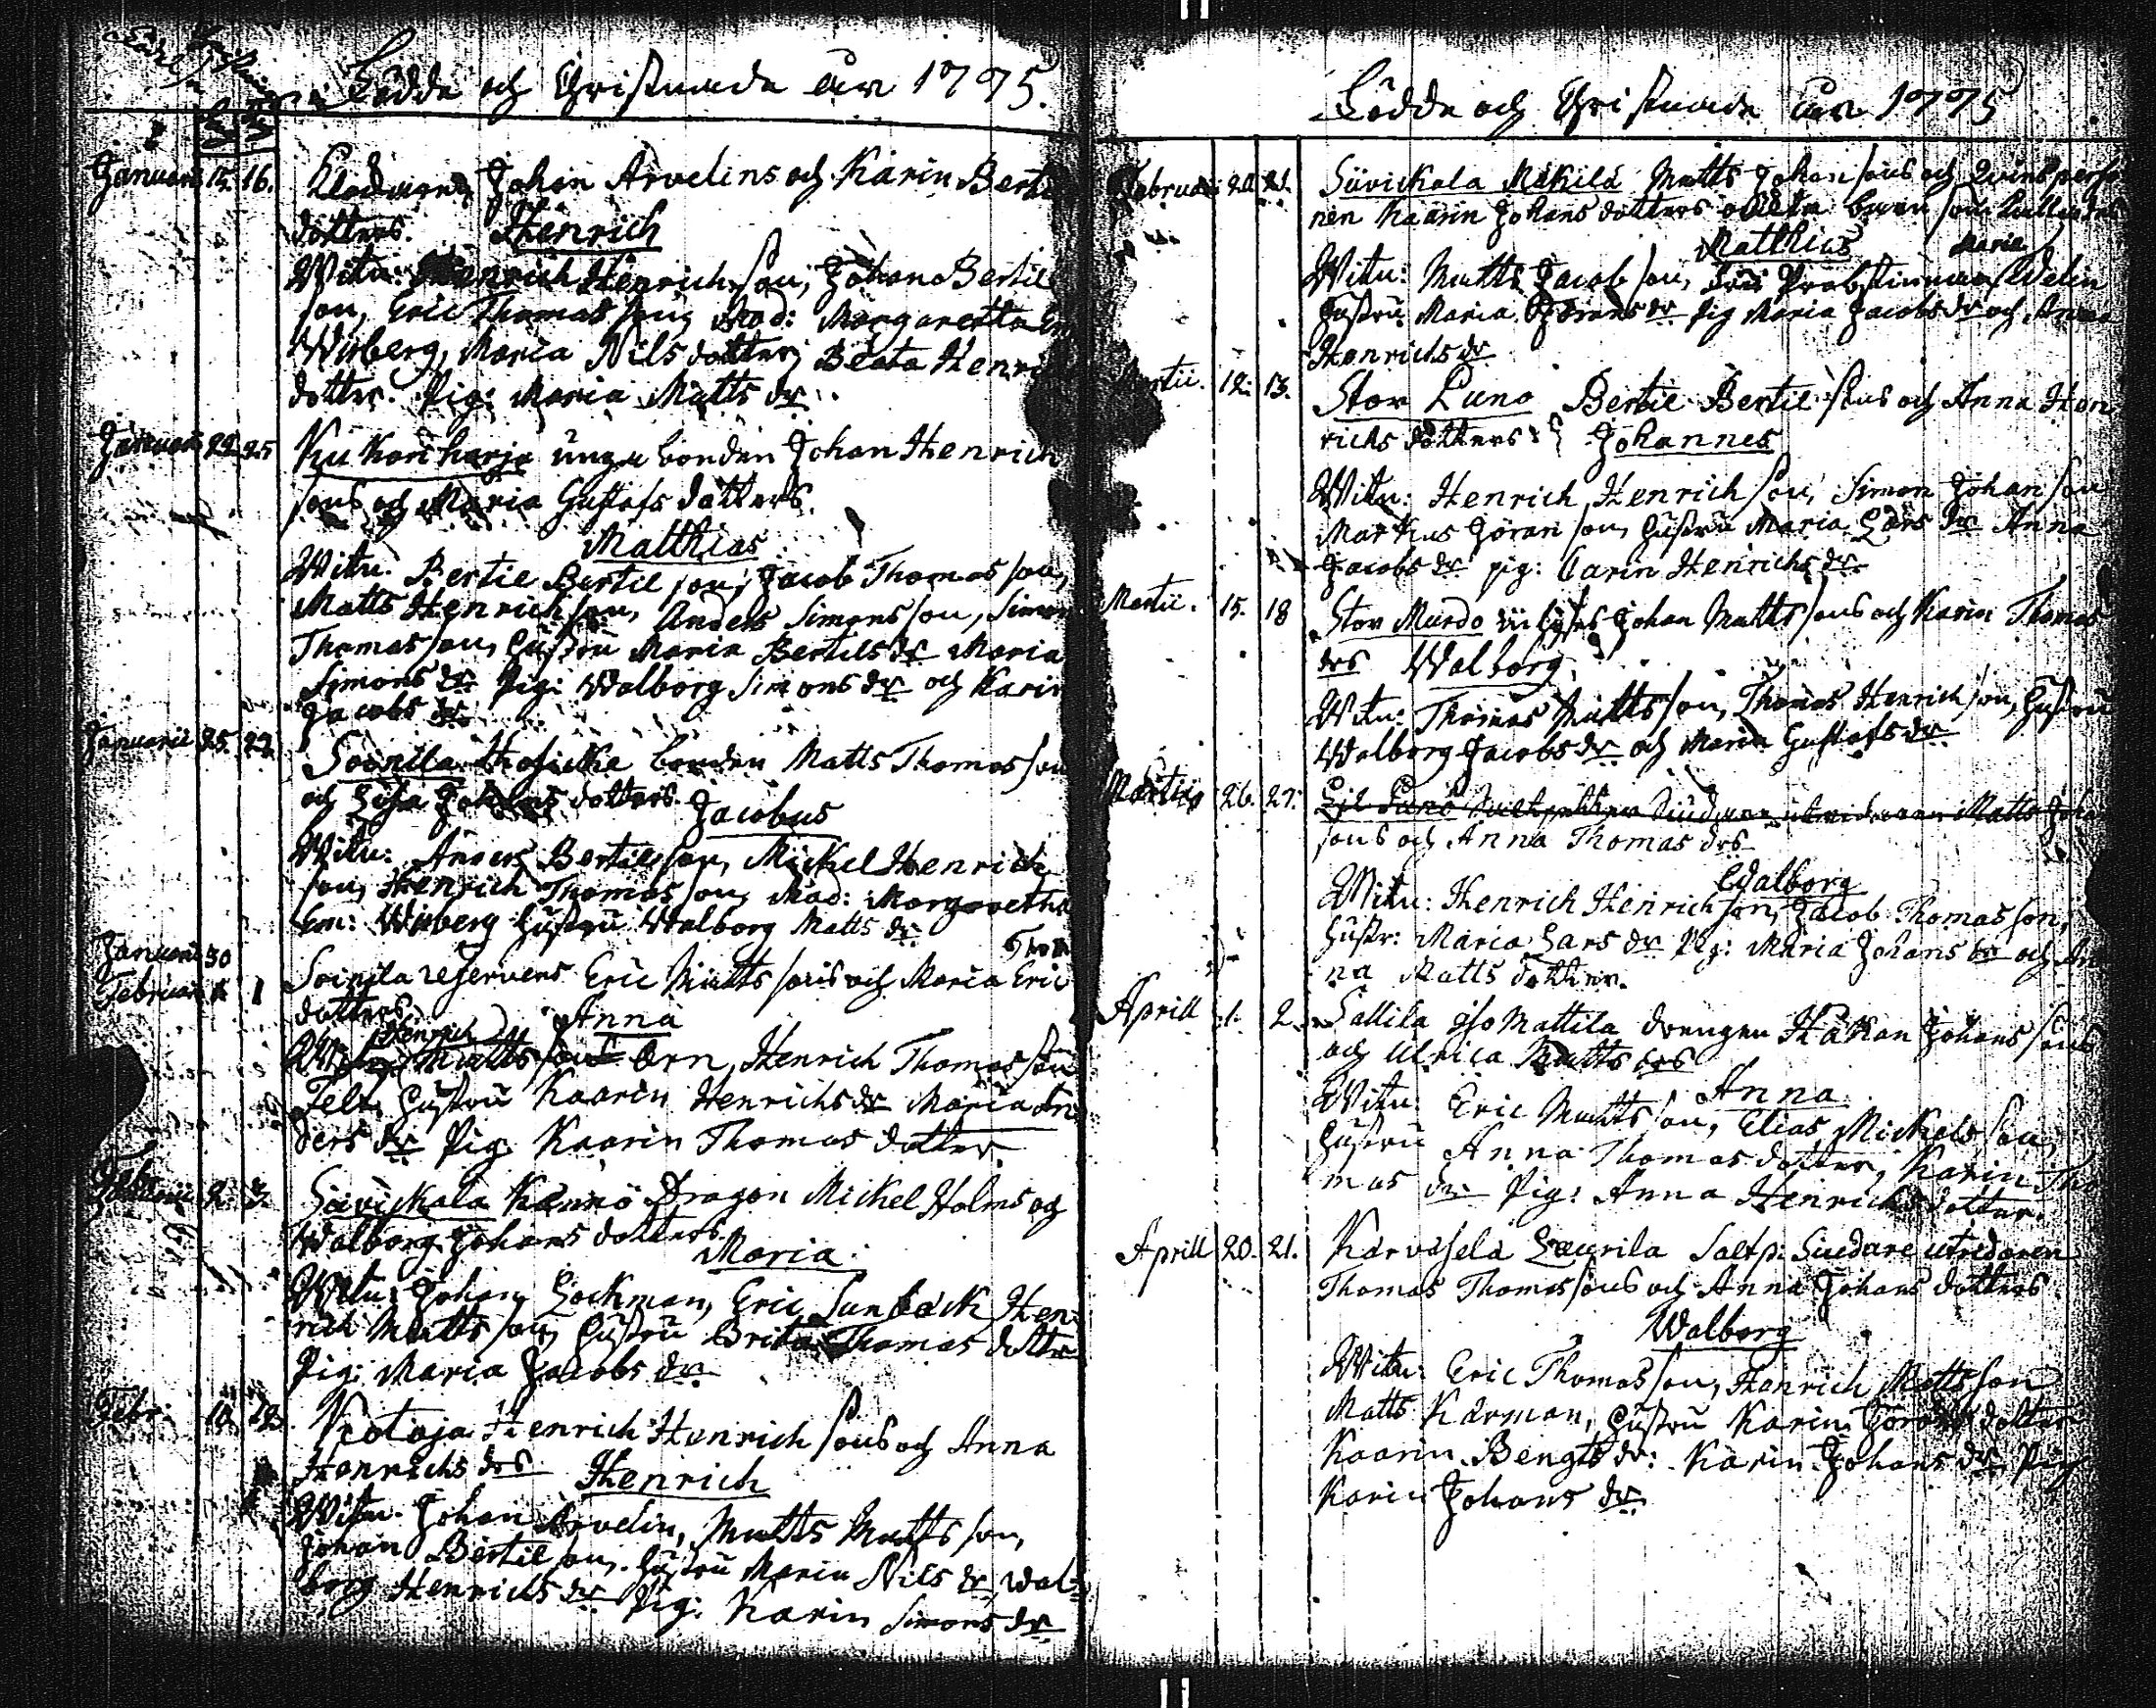 Födde och Christnade år 1795.
Januarii 15. 16. Johan Arvelins och Karin Bertils
dotters. Henrich
Witn: Henrich Henrichsson, Johan Bertil
son, Eric Thomasson, Mad: Margaretha
Wirberg, Maria Nilsdotter, Beata Henrichs
dotter. Pig: Maria Matts dr.
Januarii 22. 25 Kukonharja unga bonden Johan Henrich
sons och Maria Gustafs dotters.
Matthias
Witn. Bertil Bertilson, Jacob Thomasson,
Matts Henrichson, Anders Simonsson, Simon
Thomasson, hustru Maria Bertils dr Maria
Simons dr. Pig: Walborg Simons dr och Karin
Jacobs dr.
Januarii 25. Soinila bonden Matts Thomasson
och Lisa Johans dotters. Jacobus
Witn: Anders Bertilsson, Mickel Henrich
son, Henrich Thomasson, Mad: Margaretha
Em: Wirberg hustru Walborg Matts dr.
Januarii 30
Februarii 1 Soinila Eric Mattssons och Maria Eric
dotters. Anna
Henrich
Witn: Matts Orn, Henrich Thomasson
Felt, hustru Kaarin Henrichs dr Maria An
ders dr Pig. Kaarin Thomas dotter.
Febr. 2. 3. Sävickala Kännö Dragon Mickel Holms og
Walborg Johans dotters.
Maria
Witn: Johan Lockman, Eric Sunback Hen
rich Mattsson, hustru Brita Thomas dotter
Pig: Maria Jacobs dr.
Febr. 10. 12. Kotoja Henrich Henrichsons och Anna
Henrichs drs Henrich
Witn. Johan Arvelin, Matts Mattsson,
Johan Bertilson, hustru Maria Nils dr, Wal
borg Henrichs dr Pig: Karin Simons dr
Födde och Christnade år 1795
Februarii 20. 21. Sävickala Mäkilä Matts Johansons och Qvinsperso
nen Kaarin Johans dotters oächta barn som kallades
Matthias Maria
Witn: Matts Jacobson, Probstinnan Wdelin
hustru Maria Görans dr Pig Maria Jacobs dr och Anna
Henrichs dr
Martii. 12. 13. Stor Luno Bertil Bertilsons och Anna Hen
richs dotters Johannes
Witn: Henrich Henrichson, Simon Johanson
Markus Göranson, hustru Maria Lars dr Anna
Jacobs dr pig: Carin Henrichs dr.
Martii. 15. 18 Stor Murdo Johan Mattssons och Karin Thomas
drs Walborg
Witn: Thomas Mattsson, Thomas Henrichson, hustru
Walborg Jacobs dr och Maria Gustafs dr
Martii 26. 27. Matts Joh
sons och Anna Thomas drs
Walborg
Witn: Henrich Henrichson, Jacob Thomasson,
hustr: Maria Lars dr. Pig: Maria Johans dr och An
na Matts dotter.
Aprill 1. 2. Sallila Iso Mattila drengen Håkan Johans sons
och Ulrica Matts drs
Anna
Witn: Eric Mattsson, Elias Mickelsson,
hustru Anna Thomasdotter, Karin Tho
mas dr Pig: Anna Henrichsdotter.
Aprill 20. 21. Karvaselä Laurila Saltp: Siudare utridaren
Thomas Thomassons och Anna Johans dotters
Walborg
Witn: Eric Thomasson, Henrich Mattsson
Matts Karman, hustru Karin Görans dotter
Kaarin Bengts dr: Karin Johans dr Pig
Karin Johans dr.